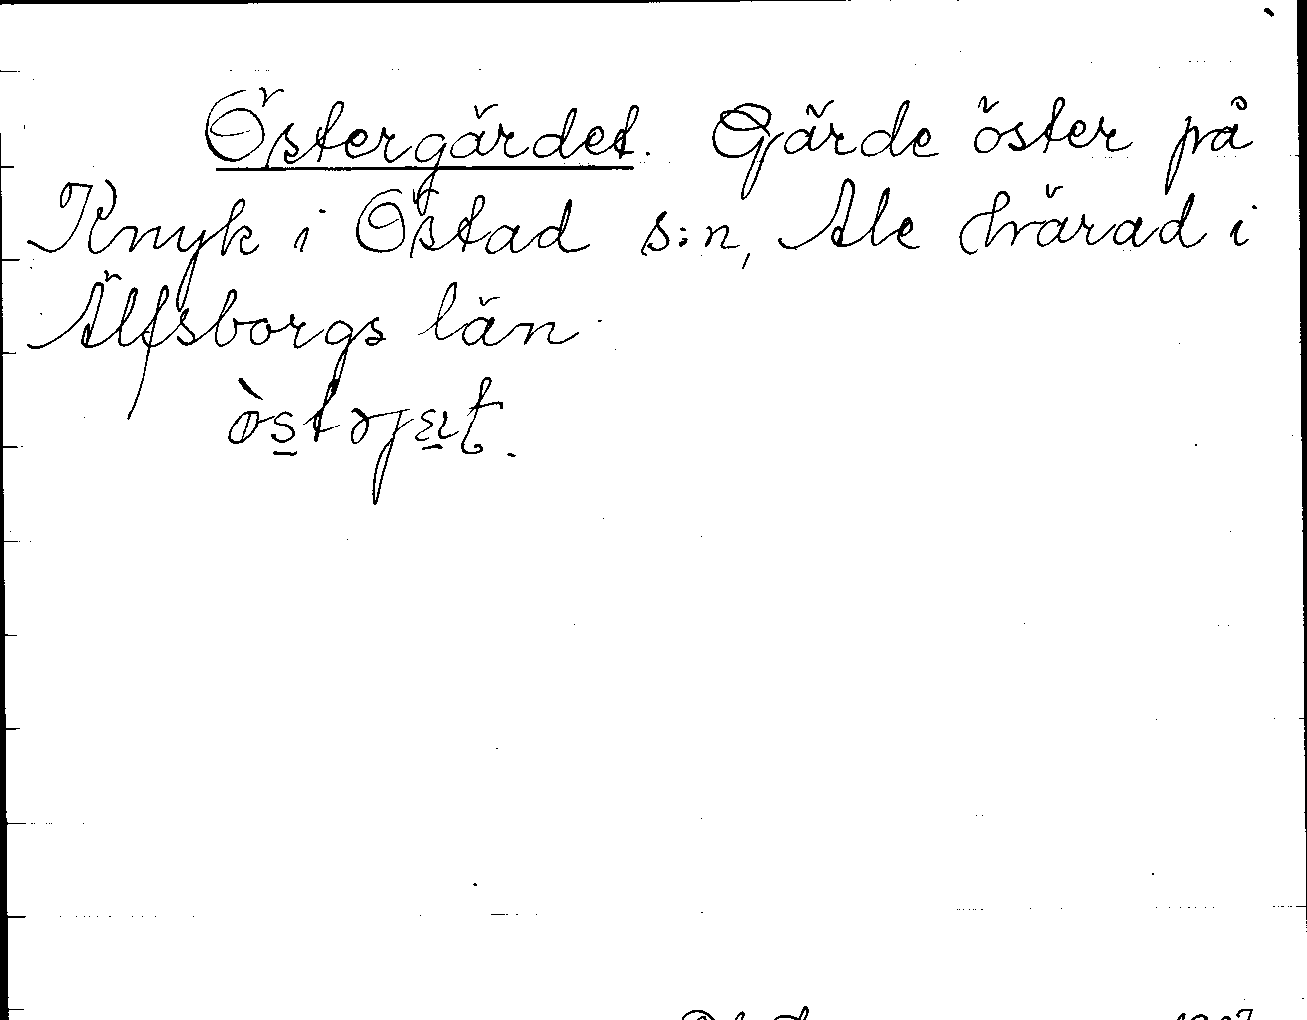 Östergärdet. Gärde öster på
Knyk i Östad s:n, Ale härad i
Älfsborgs län